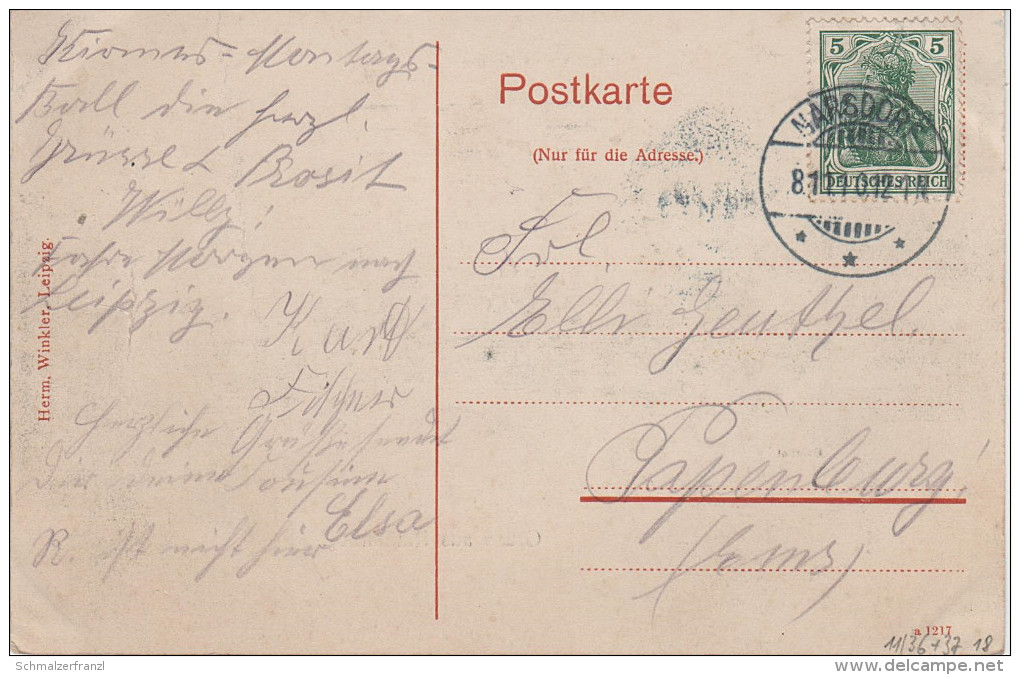 Kirmes-Montags-
Ball die herzl.
Grüsse & Prosit
Willy!
Fahre Morgen nach
Leipzig.
Karl
Fischer
Herzliche Grüße sendet
Dir deine Cousine
Elsa
R. ist nicht hier
Herm. Winkler, Leipzig.
Postkarte
(Nur für die Adresse.)
5 5
DEUTSCHES REICH
NARSDORF
Frl.
Elli Genthel.
Papenburg!
(Ems)
a 1217
11/36+37 18
Schmalzerfranzl
www.delcampe.net